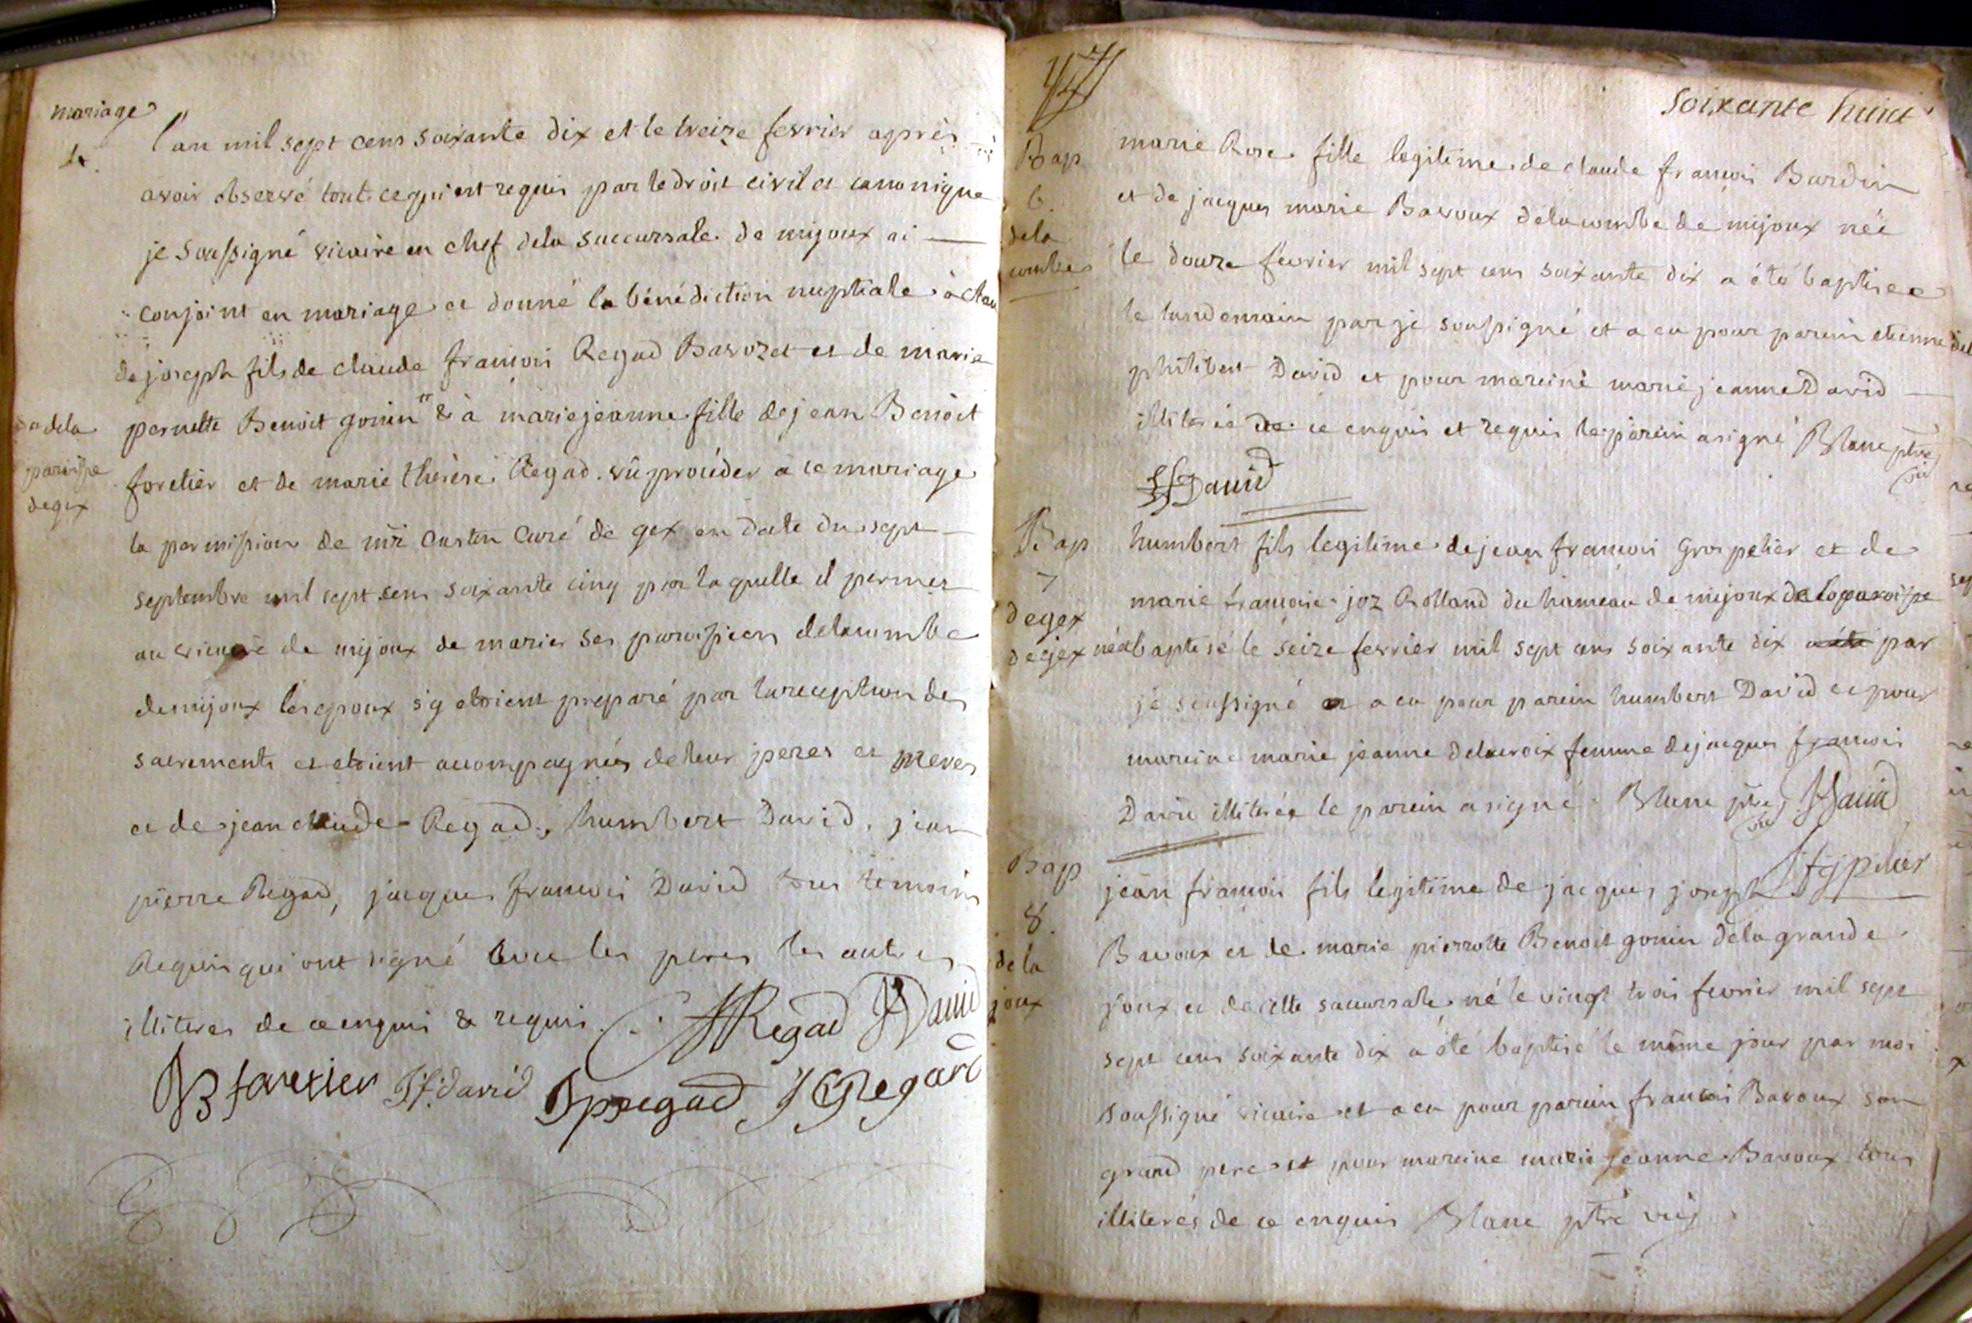 mariage
1.
l'an mil sept cens soixante dix et le treize fevrier après
avoir observé tout ce qui est requis par le droit civil et canonique
je soussigné vicaire en chef dela succursale de mijoux ai
conjoint en mariage et donné la bénédiction nuptiale à clau
de joseph fils de claude francois Regad Bavozet et de marie
pernette Benoit gonin & à marie jeanne fille de jean Benoit
dela
paroisse
de gex
foretier et de marie thérèse Regad. vû proceder a ce mariage
la permission de mr castin curé de gex en date du sept
septembre mil sept cens soixante cinq par laquelle il permet
au vicaire de mijoux de marier ses paroissiens delacombe
demijoux les epoux s'y etoient preparé par la reception des
sacrements et etoient accompagnés de leur peres et meres
et de jean claude Regad, humbert David, jean
pierre Regad, jacques francois David tous temoins
Requis qui ont signé avec les peres les autres
illiteres de ce enquis & requis
Regad HDavid
JB foretier Jf. david Jpregad JCRegad
soixante huict
Bap
6.
dela
combe
marie Rose fille legitime de claude francois Burdin
et de jacques marie Bavoux delacombe de mijoux née
le douze fevrier mil sept cens soixante dix a été baptisee
le landemain par je soussigné et a eu pour parein etienne
philibert David et pour mareine marie jeanne David
illiterée de ce enquis et requis le parein a signé Blanc ptre
vic
David
Bap
7
de gex
de gex
humbert fils legitime de jean francois Grospelier et de
marie francoise joz Rolland du hameau de mijoux de la paroisse
né et baptisé le seize fevrier mil sept cens soixante dix a été par
je soussigné et a eu pour parein humbert David et pour
mareine marie jeanne delacroix femme de jacques francois
David illiterée le parein a signé. Blanc ptre HDavid
vic
Bap
8.
de la
joux
jean francois fils legitime de jacques joseph
Bavoux et de marie pierrotte Benoit gonin dela grande
joux et de cette succursale né le vingt trois fevrier mil sept
sept cens soixante dix a été baptisé le même jour par moi
soussigné vicaire et a eu pour parein francois Bavoux son
grand pere et pour mareine marie jeanne Bavoux tous
illiterés de ce enquis Blanc ptre vic